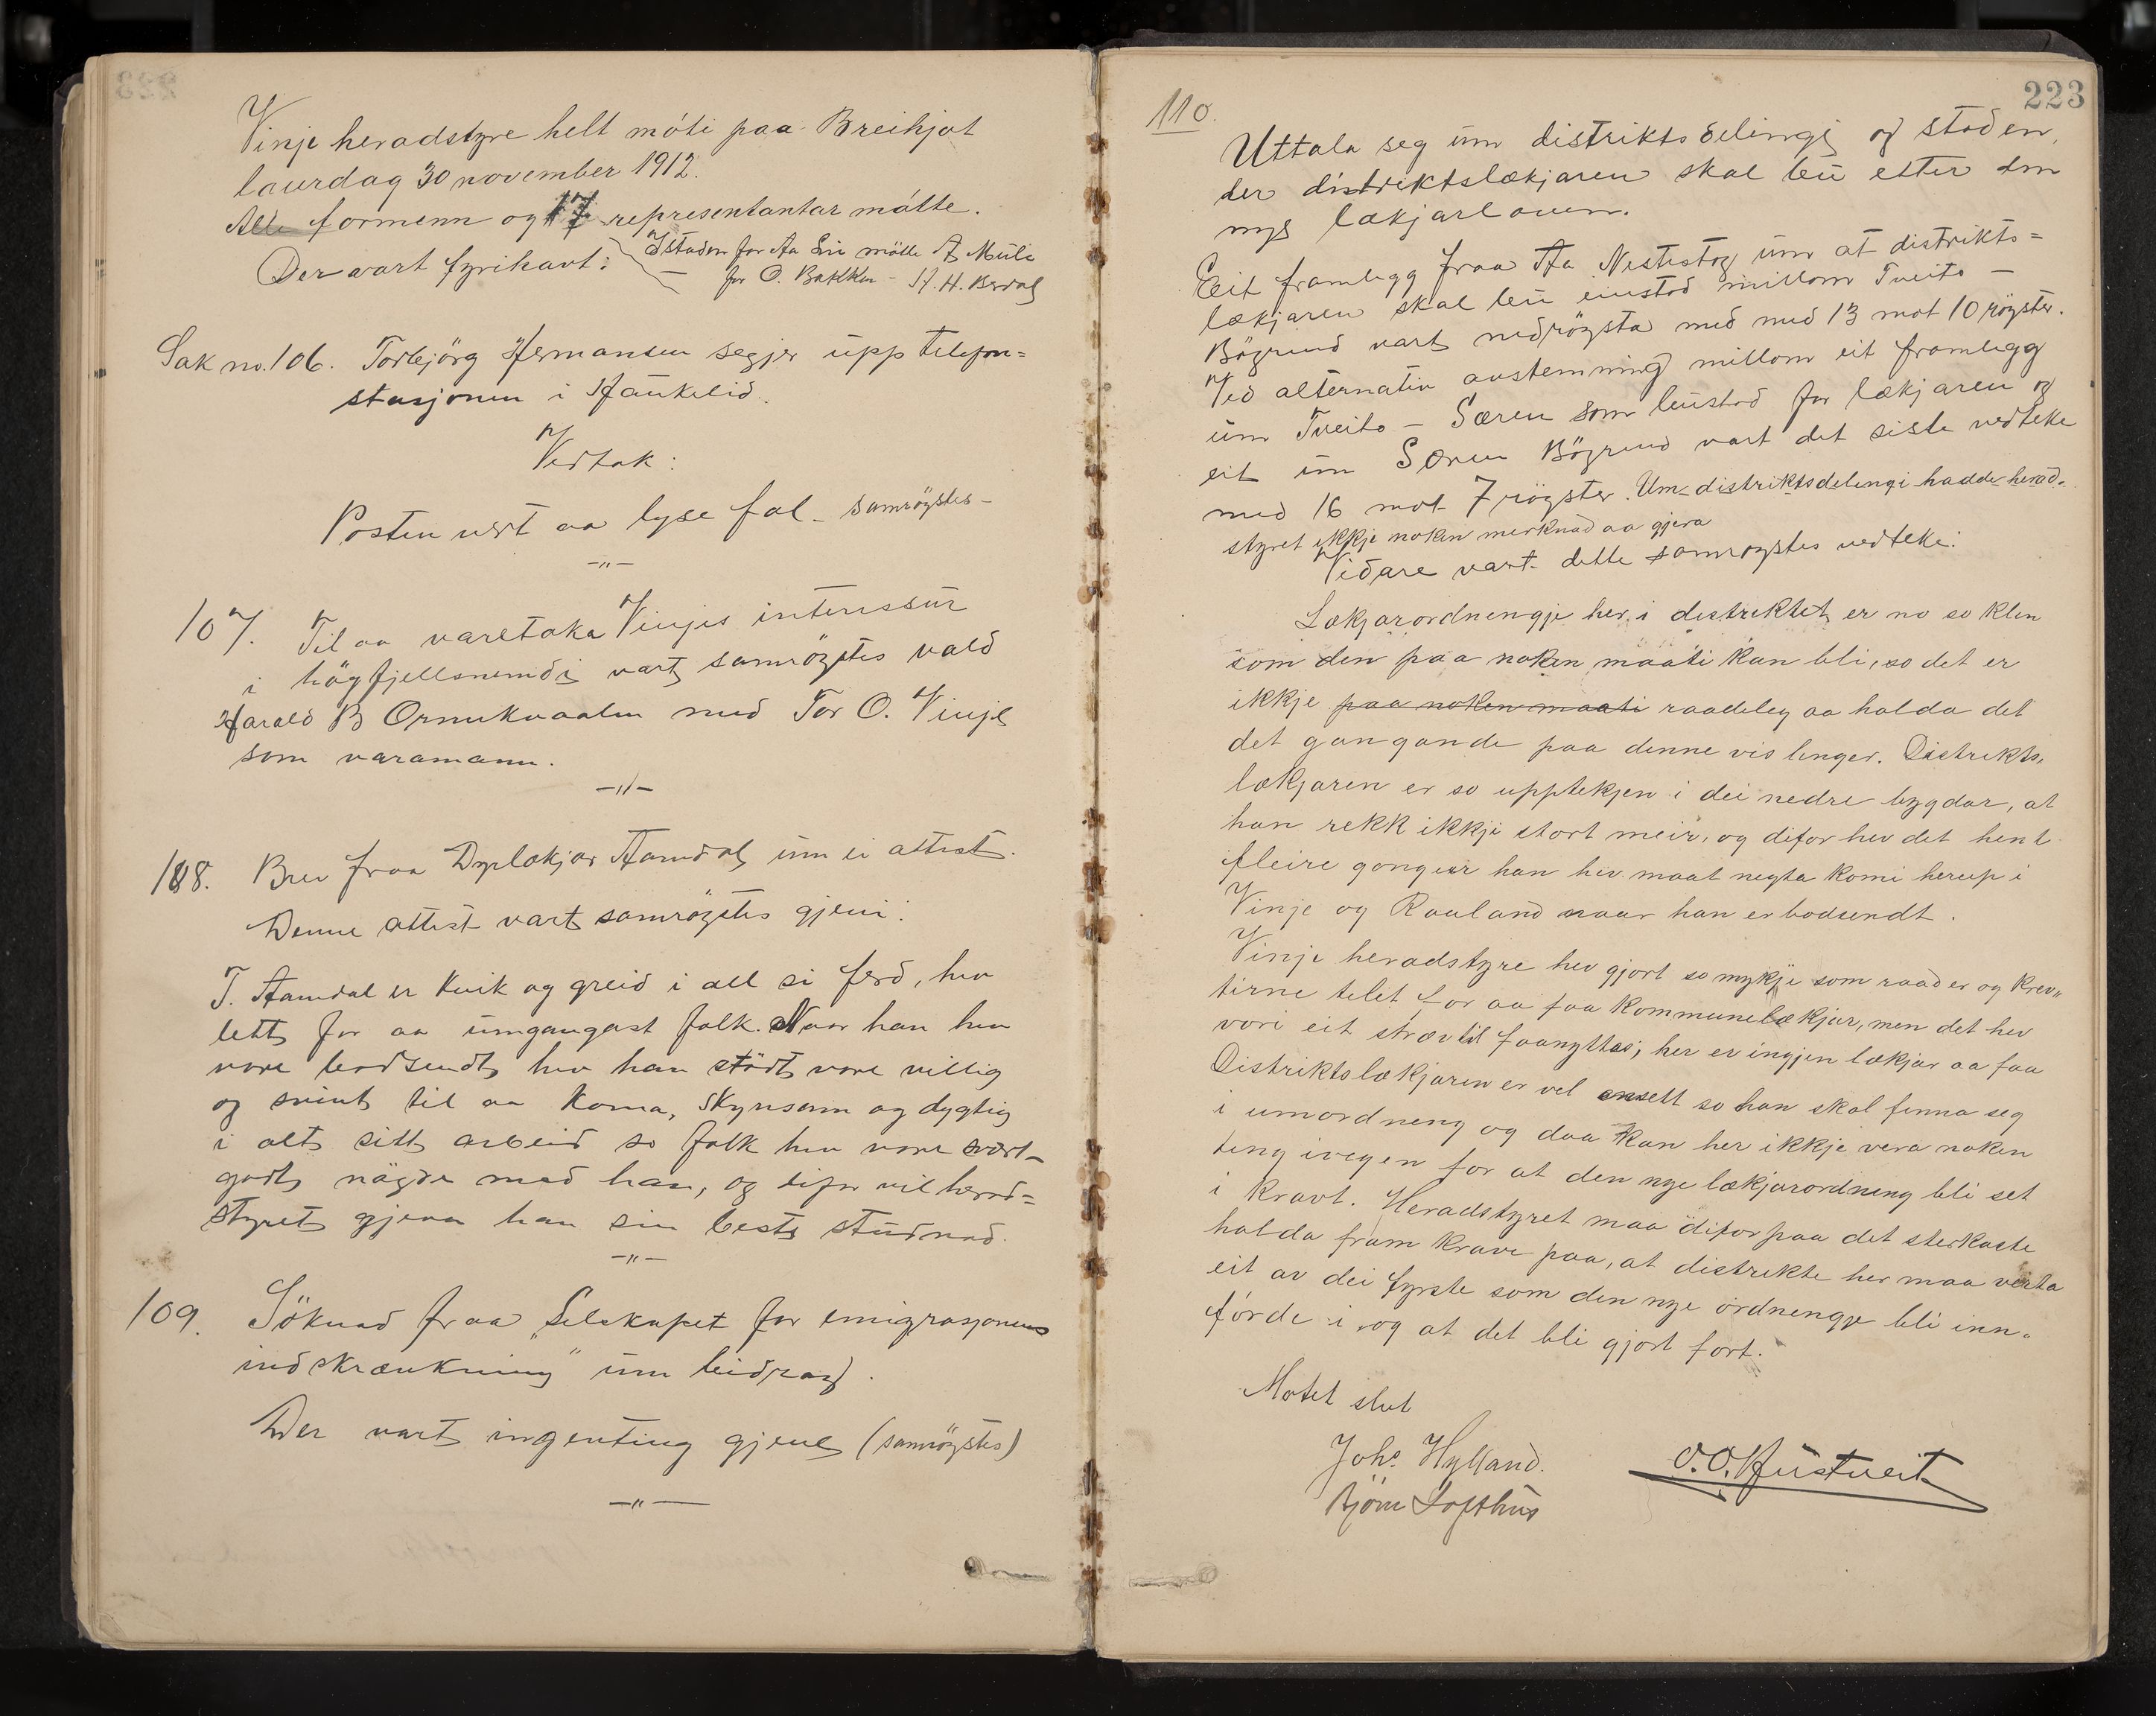 Vinje heradstyre helt móti paa Breihjot
laurdag 30 november 1912.
Alle formenn og 17 representantar mátte.
Istaden for Aa Lie mötte A Mule
Der vart fyrihavt:
for O. Bakken - H. H. Berdal
Sak no. 106. Torbjörg Hermansen segjer upp telefon=
stasjonen i Haukelid.
Vedtak:
Posten vert aa lyse fal - samröystes -
-"-
107. Til aa varetaka Vinjes interessur
i högfjellsnemdi vart samröystes vald
Harald B Ormukvaalen med Tor O. Vinje
som varamann.
-"-
108. Brev fraa Dyrlækjar Aamdal um ei attest.
Denne attest vart samröystes gjevi:
T. Aamdal er kvik og greid i all si ferd, hev
lett for aa umgangast folk. Naar han hev
vore bodsendt hev han stödt vore villig
og snint til aa koma, skynsam og dygtig
i alt sitt arbeid so folk hev vore svært-
godt nögde med han, og difor vil herad=
styret gjeva han sin beste studnad.
-"-
109. Söknad fraa "Selskapet for emigrasjonens
indskrænkning" um bidrag.
Der vart ingenting gjeve (samröystes)
-"-
223
110.
Uttala seg um distriktsdelingi og staden
der distriktslækjaren skal bu etter den
nye lækjarloven.
Eit framlegg fraa Aa Nestestog um at distrikts=
lækjaren skal bu einstad millom Tveito -
Bögrend vart nedröysta med med 13 mot 10 röyster.
Ved alternativ avstemning millom eit framlegg
um Tveito - Særen som bustad for lækjaren og
eit um Særen Bögrend vart det siste vedteke
med 16 mot 7 röyster. Um distriktsdelingi hadde herad-
styret ikkje noken merknad aa gjera
Vidare vart dette samröystes vedteke:
Lækjarordnengje her i distriktet er no so klen
som den paa noken maati kan bli, so det er
ikkje paa noken maati raadeleg aa halda det
det gangande paa denne vis lenger. Distrikts-
lækjaren er so upptekjen i dei nedre bygdar, at
han rekk ikkji stort meir, og difor hev det hent
fleire gongur han hev maat negta komi herup i
Vinje og Rauland naar han er bodsendt.
Vinje heradstyre hev gjort so mykje som raad er og krev"
tirne telet for aa faa kommunelækjar, men det hev
vori eit stræv til faanyttes; her er ingjen lækjar aa faa
Distriktslækjaren er vel ansett so han skal finna seg
i umordneng og daa kan her ikkje vera noken
teng ivegen for at den nye lækjarordneng bli set
i kravt. Heradstyret maa difor paa det sterkaste
halda fram krave paa, at distrikte her maa verta
eit av dei fyrste som den nye ordnengje bli inn-
förde i, og at det bli gjort fort.
Motet slut
Johs. Hylland.
O. O. Hustveit
Björn Lofthus